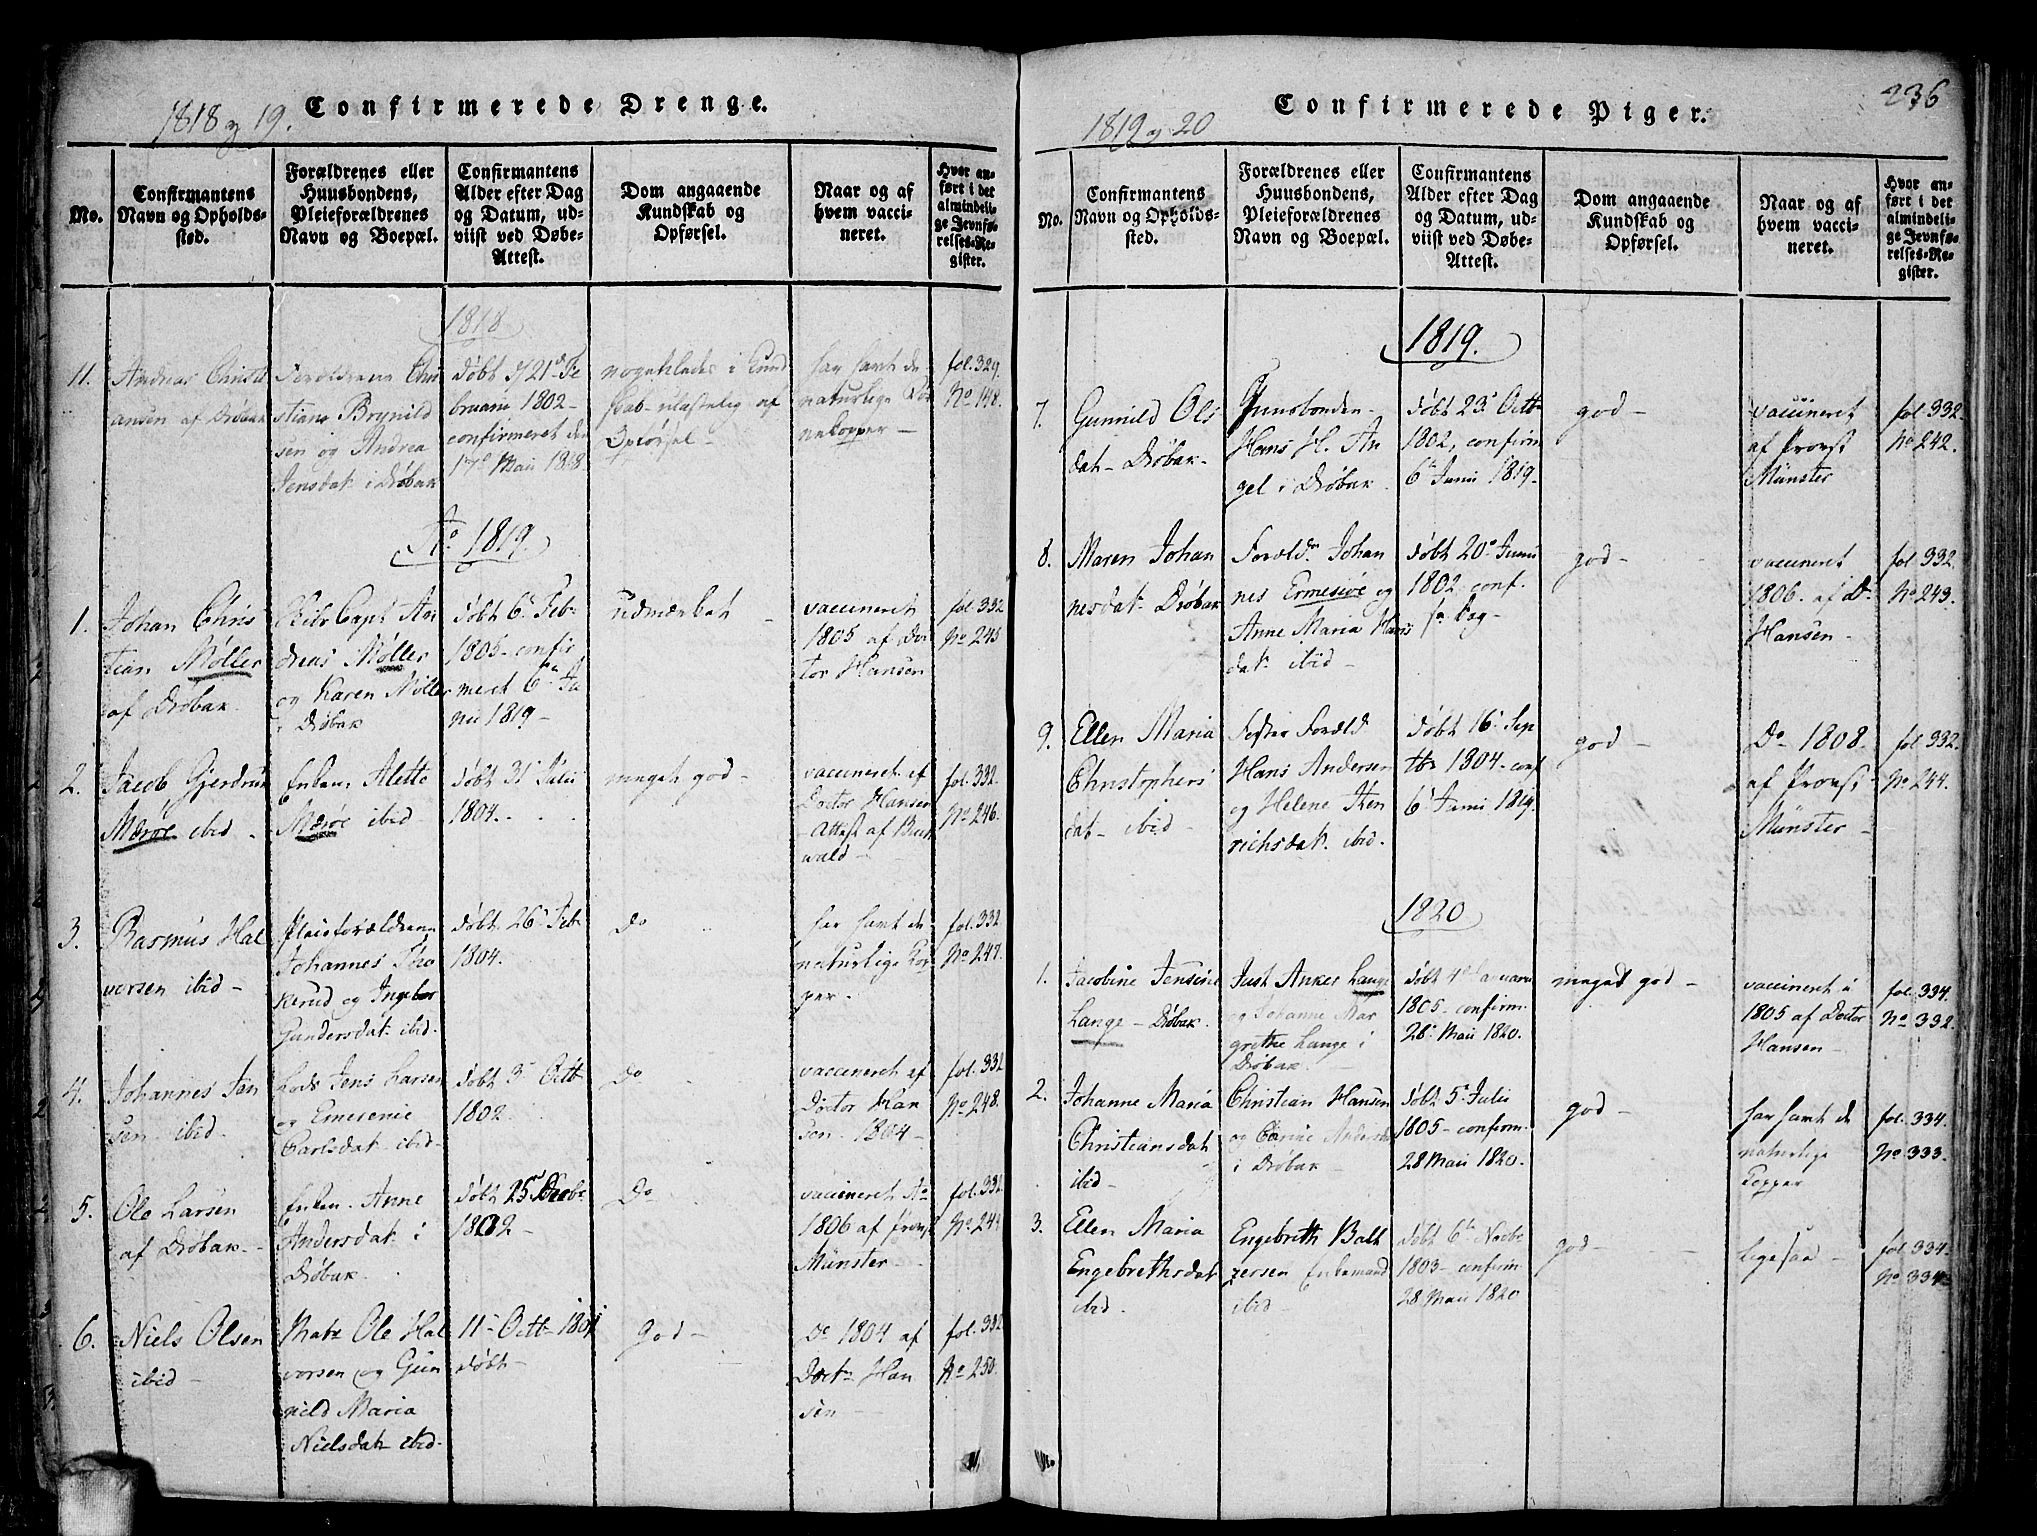 1818 og 19.
Confirmerede Drenge.
No.
Confirmantens
Navn og Opholds-
sted.
Forældrenes eller
Huusbondens,
Pleieforældrenes
Navn og Boepæl.
Confirmantens
Alder efter Dag
og Datum, ud-
viist ved Døbe-
Attest.
Dom angaaende
Kundskab og
Opførsel.
Naar og af
hvem vacci-
neret.
Hvor an-
ført i det
almindeli-
ge Jevnfø-
relses-Re-
gister.
1818
11.
Andreas Christi
ansen af Drøbak
Forældrene Chri
stian Brynild
sen og Andrea
Jensdat. i Drøbak
døbt 21d Fe
bruarii 1802-
confirmeret den
17de Maii 1818
nogenledes i Kund
skab - ulastelig af
Opførsel-
har havt de
naturlige Bør
nekopper-
fol. 329.
No 148.
Ao 1819.
1.
Johan Chris
tian Møller
af Drøbak.
Skibs Capt. An
dreas Møller
og Karen Møller
i Drøbak
døbt 6. Febr.
1805- confir
meret 6te Ju
nii 1819-
udmærket -
vaccineret
1805 af Doc
tor Hansen
fol. 332
No 245
2.
Jacob Gjerdrum
Mærøe ibid.
Enken Alette
Mærøe ibid-
døbt 31 Julii
1804.
meget god-
vaccineret af
Doctor Hansen
- Attest af Buch
wald-
fol. 332.
No 246.
3.
Rasmus Hal
vorsen ibid-
Pleieforældrene
Johannes Tho
kerud og Ingebor
Gundersdat. ibid.
døbt 26 Febr
1804.
Do
har havt de
naturlige Kop
per.
fol. 332
No 247.
4.
Johannes Jen
sen ibid.
Lods Jens Larsen
og Emerenie
Carlsdat. ibid-
døbt 3 Octbr
1802.
Do
vaccineret af
Doctor Han
sen. 1804-
fol. 332
No 248.
5.
Ole Larsen
af Drøbak.
Enken Anne
Andersdat. i
Drøbak.
døbt 25 Decbr
1802-
Do
vaccineret Ao
1806 af Provst
Münster-
fol. 332
No 249
6.
Niels Olsen
ibid-
Matr. Ole Hal
vorsen og Gun
nild Maria
Nielsdat. ibid-
11 Octbr 1801
døbt-
god-
Do 1804 af
Doct. Han
sen-
fol. 332
No 250.
236
1819 og 20
Confirmerede Piger.
No.
Confirmantens
Navn og Opholds-
sted.
Forældrenes eller
Huusbondens,
Pleieforældrenes
Navn og Boepæl.
Confirmantens
Alder efter Dag
og Datum, ud-
viist ved Døbe-
Attest.
Dom angaaende
Kundskab og
Opførsel.
Naar og af
hvem vacci-
neret.
Hvor an-
ført i det
almindeli-
ge Jevnfø-
relses-Re-
gister.
1819.
7.
Gunnild Ols
dat- Drøbak-
Huusbonden
Hans H. An
gel i Drøbak
døbt 23 Octbr
1802, confirm
6 Junii 1819-
god-
vaccineret
af Provst
Münster
fol. 332.
No 242.
8.
Maren Johan
nesdat. Drøbak
Foreld. Johan
nes Ermesiøe og
Anne Maria Hans
dat. ibid-
døbt 20 Junii
1802 conf.
sa. Dag-
god-
vaccineret
1806. af Dr.
Hansen-
fol. 332.
No 243.
9.
Ellen Maria
Christophers
dat- ibid-
Foster Foreld
Hans Andersen
og Helene Hen
richsdat. ibid.
døbt 16 Sep
tbr 1804- conf
6 Junii 1819.
god-
Do 1808.
af Provst
Münster-
fol. 332.
No 244.
1820
1.
Jacobine Jensine
Lange- Drøbak.
Just Anker Lange
og Johanne Mar
grethe Lange i
Drøbak.
døbt 4 Januarii
1805- confirm.
28 Maii 1820.
meged god-
vaccineret i
1805 af Doctor
Hansen-
fol. 334.
No 332.
2.
Johanne Maria
Christiansdat
ibid-
Christian Hansen
og Carine Andersdat
i Drøbak-
døbt 5 Julii
1805- confirm.
28 Maii 1820.
god-
har havt de
naturlige
Kopper
fol. 334.
No 333.
3.
Ellen Maria
Engebrethsdat
ibid.
Engebreth Balt
zersen Enkemand
ibid-
døbt 6 Novbr
1803- confirm
28 Maii 1820
god-
ligesaa-
fol. 334.
No 334.